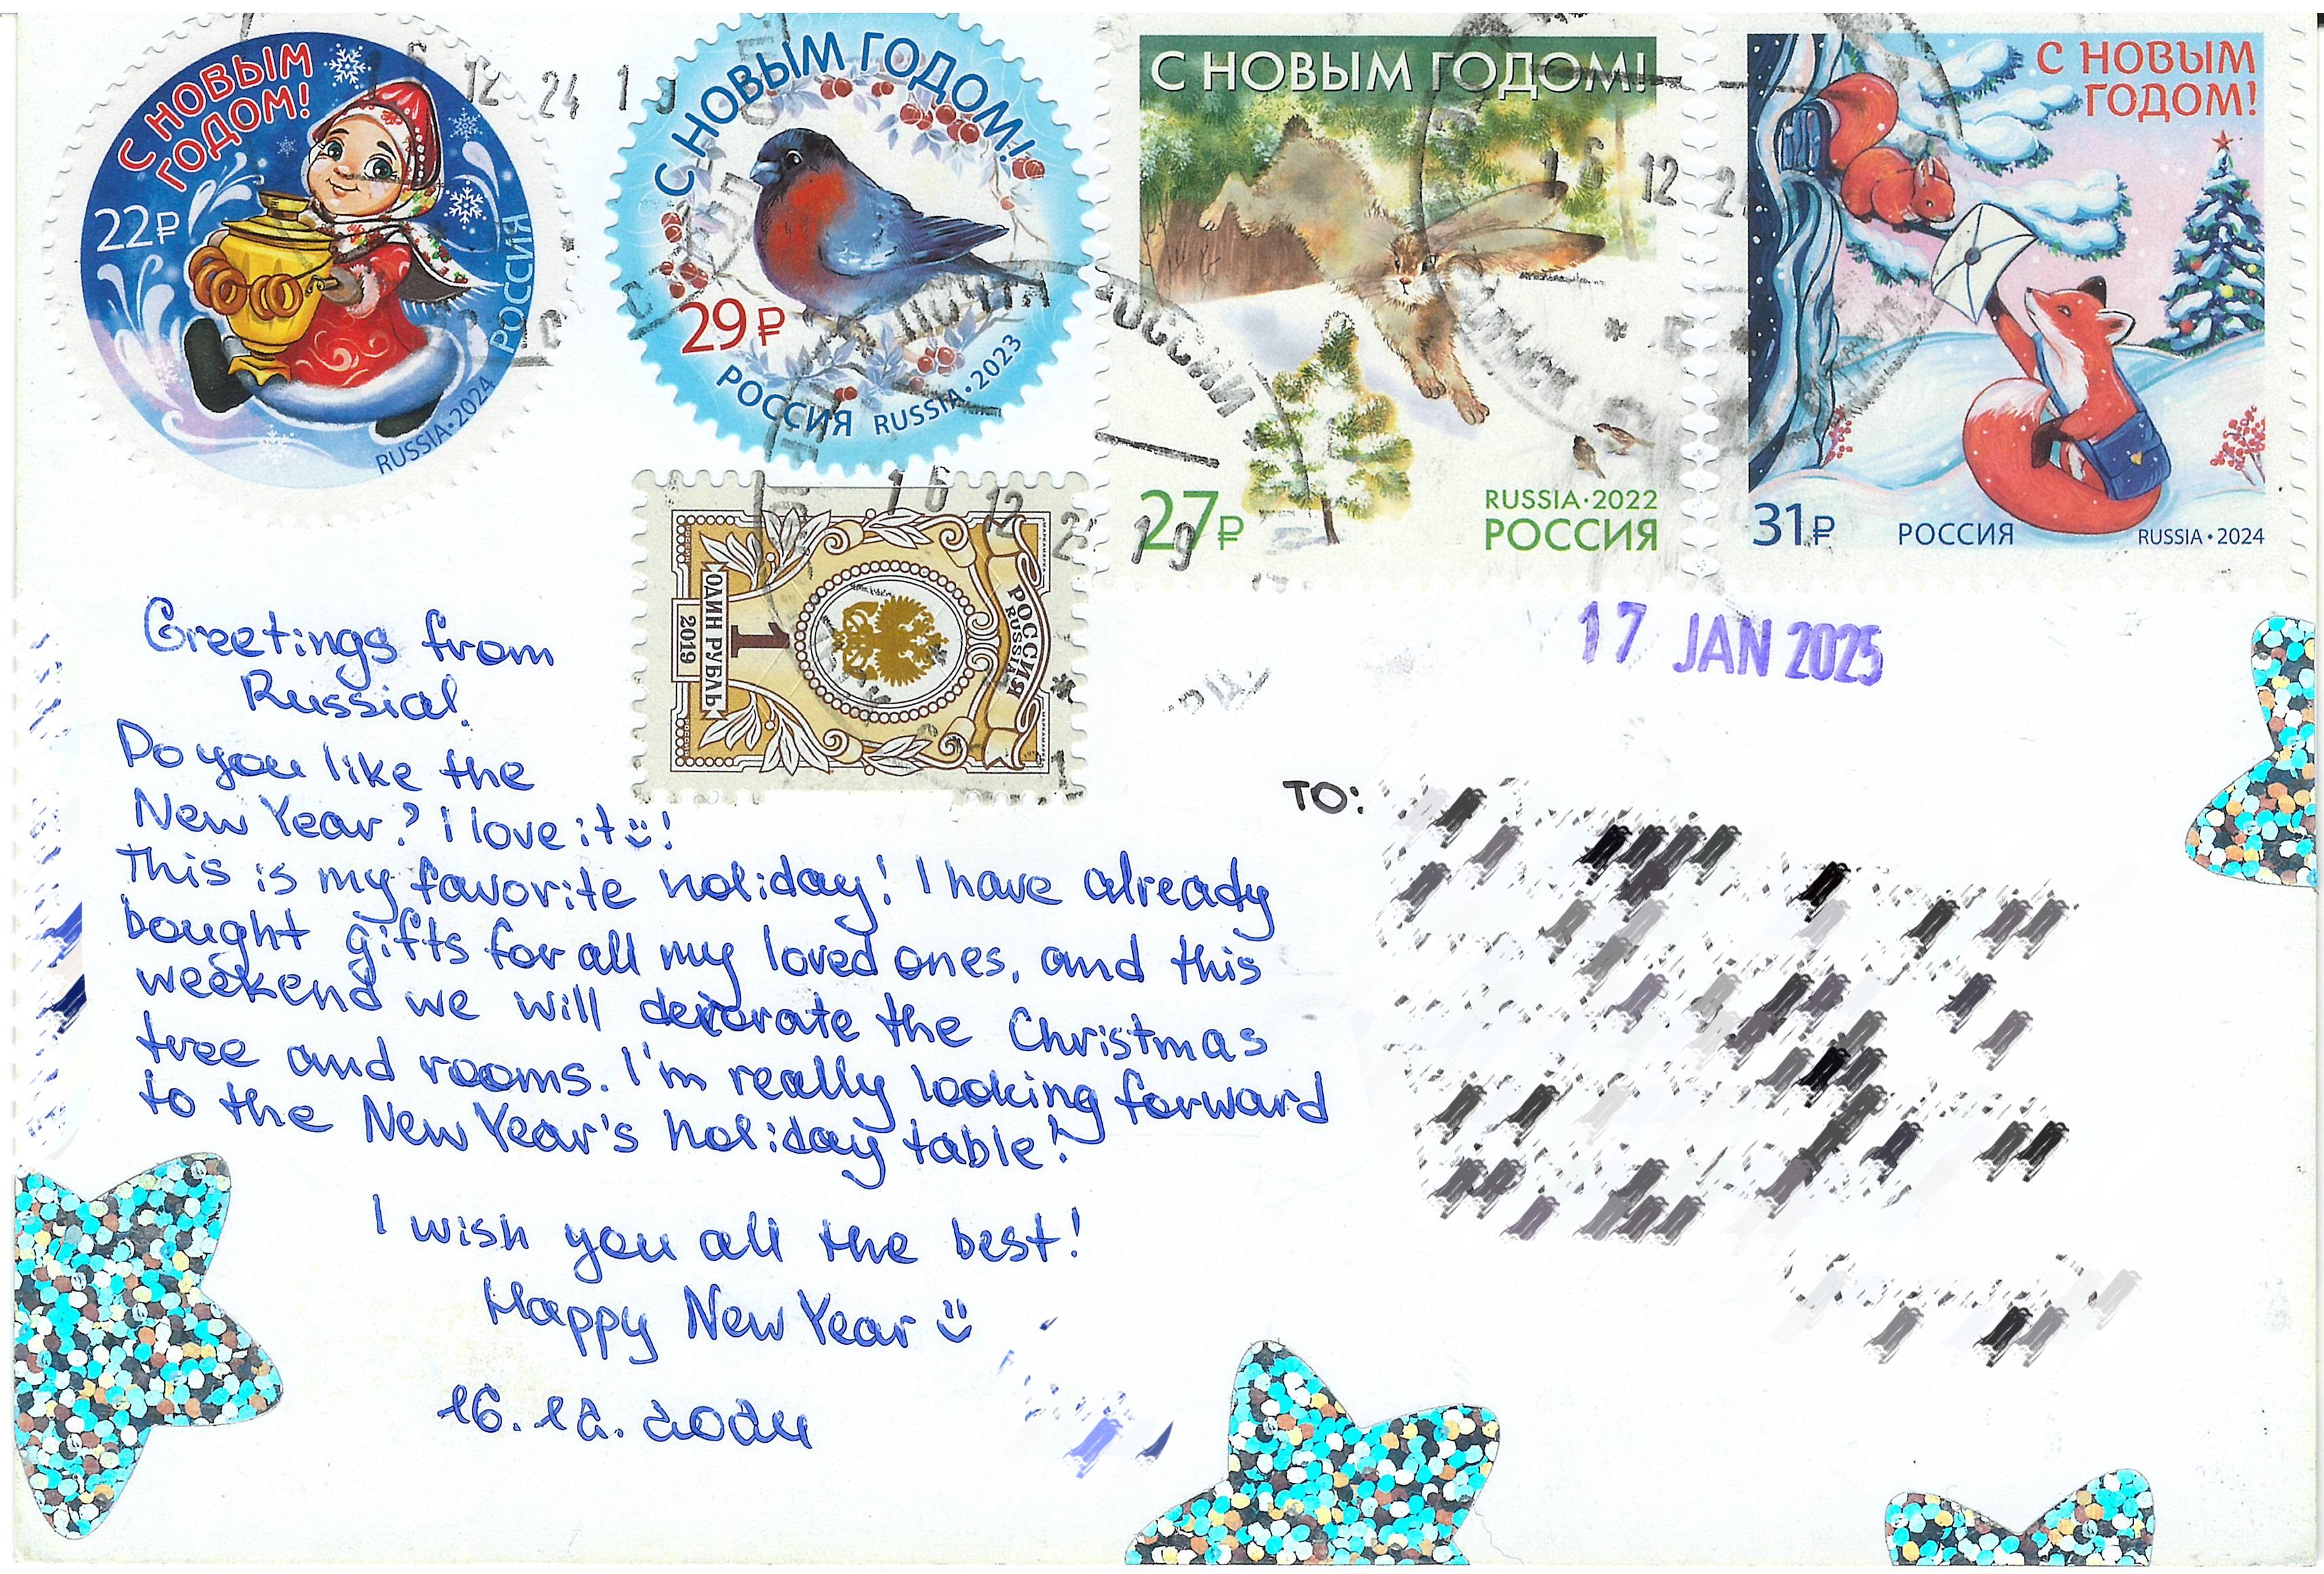 С НОВЫМ
ГОДОМ!
22₽
РОССИЯ
RUSSIA•2024
12 24 1
С НОВЫМ ГОДОМ!
29₽
РОССИЯ RUSSIA•2023
ПОЧТА
С НОВЫМ ГОДОМ!
16 12 2
РОССИИ
27₽
RUSSIA•2022
РОССИЯ
С НОВЫМ
ГОДОМ!
31₽
РОССИЯ
RUSSIA•2024
16 12 2 19
РОССИЯ
RUSSIA
1
ОДИН РУБЛЬ
2019
17 JAN 2025
Greetings from
Russia!
Do you like the
New Year? I love it!
This is my favorite holiday! I have already
bought gifts for all my loved ones, and this
weekend we will decorate the Christmas
tree and rooms. I'm really looking forward
to the New Year's holiday table!
I wish you all the best!
Happy New Year
16.12.2024
TO: